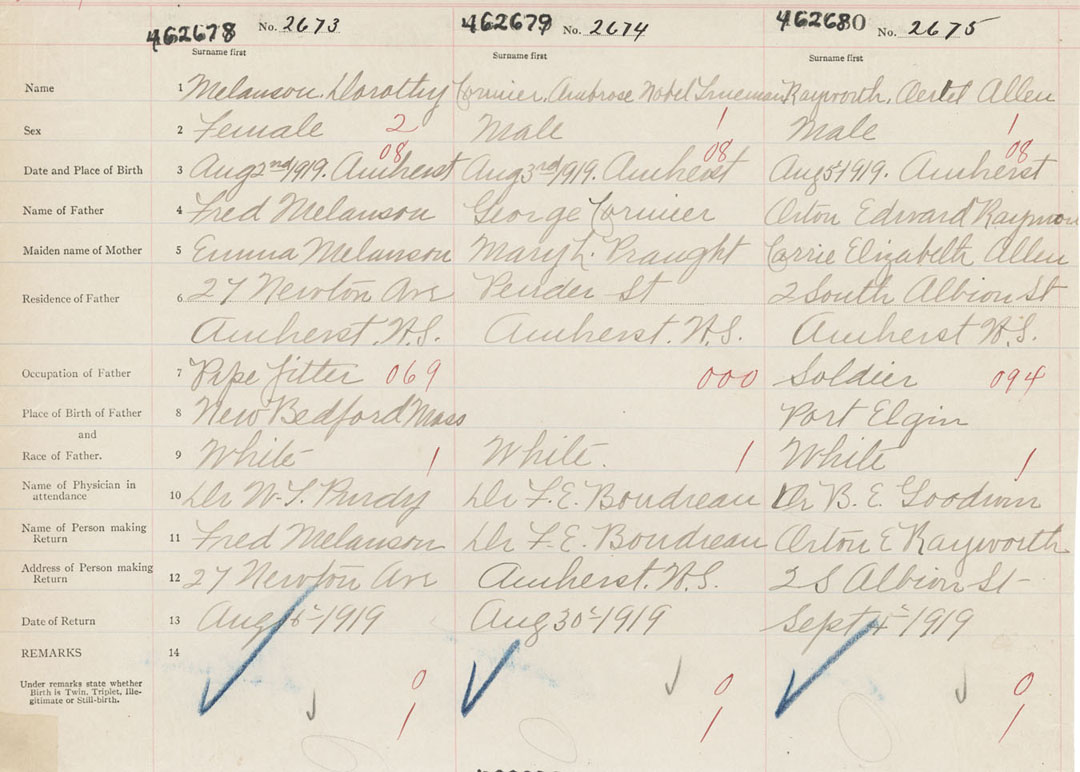 462678 No. 2673 462679 No. 2674 462680 No. 2675
Surname first Surname first Surname first
Name 1 Melanson, Dorothy Cormier, Ambrose Nobel Trueman Rayworth, Allen
Sex 2 Female 2 Male 1 Male 1
08 08 08
Date and Place of Birth 3 Aug 2nd 1919. Amherst Aug 3rd 1919. Amherst Aug 5 1919. Amherst
Name of Father 4 Fred Melanson George Cormier Orton Edward
Maiden name of Mother 5 Emma Melanson Mary L. Praught Carrie Elizabeth Allen
Residence of Father 6 27 Newton Ave Pender St 2 South Albion St
Amherst. N.S. Amherst. N.S. Amherst N.S.
Occupation of Father 7 Pipe fitter 069 000 Soldier 094
Place of Birth of Father 8 New Bedford Mass Port Elgin
and
Race of Father. 9 White 1 White. 1 White 1
Name of Physician in
attendance 10 Dr W. T. Purdy Dr F. E. Boudreau Dr B. E. Goodwin
Name of Person making
Return 11 Fred Melanson Dr F. E. Boudreau Orton E Rayworth
Address of Person making
Return 12 27 Newton Ave Amherst. N.S. 2 S Albion St
Date of Return 13 Aug 1919 Aug 30 1919 Sept 4 1919
REMARKS 14
Under remarks state whether
Birth is Twin, Triplet, Ille-
gitimate or Still-birth.
0 0 0
1 1 1